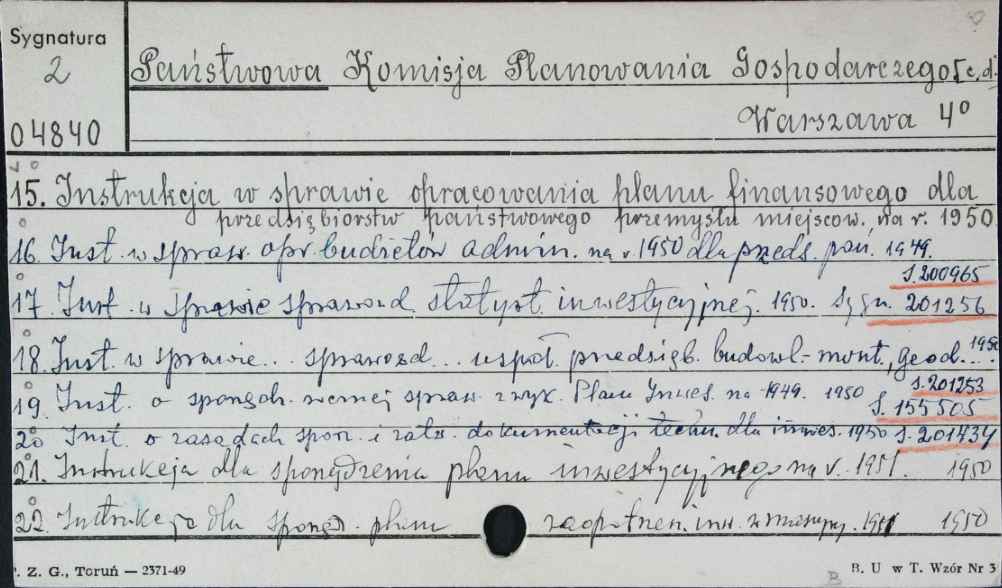 Sygnatura
2
04840
Państwowa Komisja Planowania Gospodarczego [c.d.
Warszawa 4°
15. Instrukcja w sprawie opracowania planu finansowego dla
przedsiębiorstw państwowego przemysłu miejscow. na r. 1950
16. Inst. w spraw. opr. budżetów admin. na r. 1950 dla przeds. pań. 1949.
S. 200965
17. Inst. w sprawie sprawozd. statyst. inwestycyjnej. 1950. Sygn. 201256
18. Inst. w sprawie.. sprawozd... uspoł. przedsięb. budowl.-mont., geod... 1950
S. 201253
19. Inst. o sporządz. spraw. z wyk. Planu Inwes. na 1949. 1950 S. 155505
20 Inst. o zasadach sporz. i zatw. dokumentacji techn. dla inwes. 1950 S. 201434
21. Instrukcja dla sporządzenia planu inwestycyjnego na r. 1951. 1950
22. Instrukcja dla sporządz. planu zaopatrzen. inw. w maszyny. 1951 1950
P. Z. G., Toruń — 2371-49
B. U w T. Wzór Nr 3